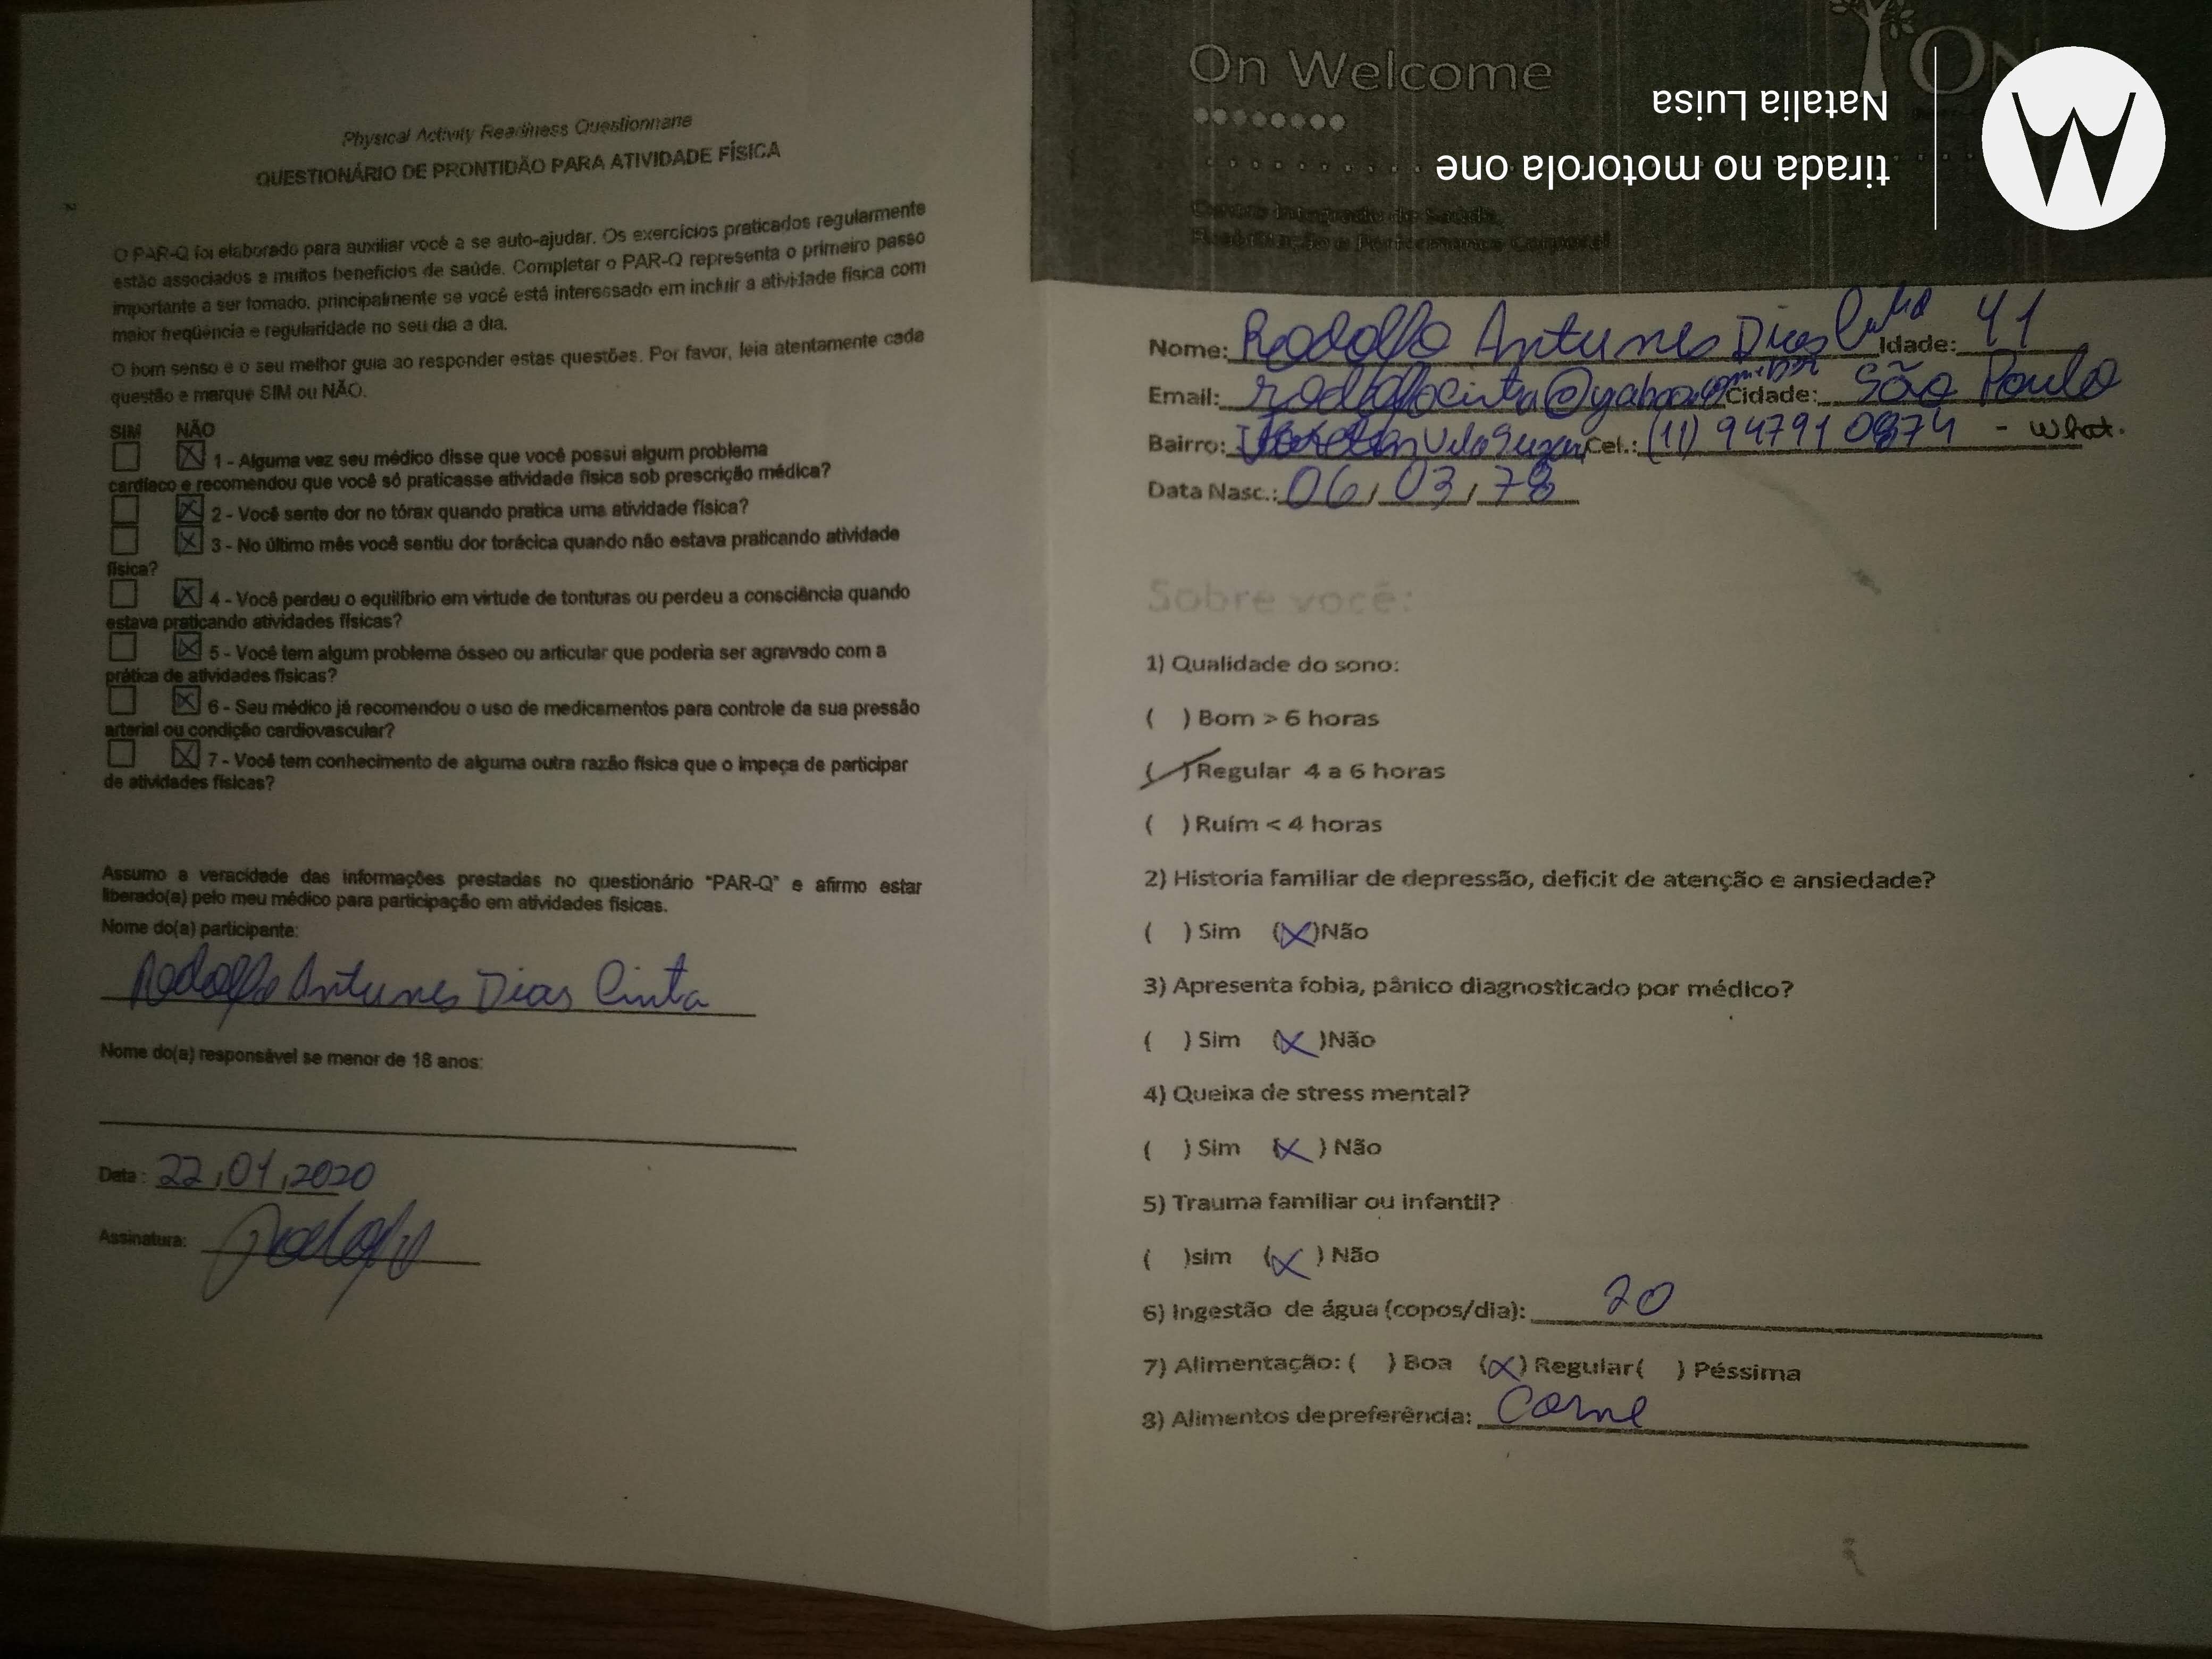 Physical Activity Readiness Questionnaire
QUESTIONÁRIO DE PRONTIDÃO PARA ATIVIDADE FÍSICA
2
O PAR-Q foi elaborado para auxiliar você a se auto-ajudar. Os exercícios praticados regularmente
estão associados a muitos benefícios de saúde. Completar o PAR-Q representa o primeiro passo
importante a ser tomado, principalmente se você está interessado em incluir a atividade física com
maior freqüência e regularidade no seu dia a dia.
O bom senso é o seu melhor guia ao responder estas questões. Por favor, leia atentamente cada
questão e marque SIM ou NÃO.
SIM NÃO
1 - Alguma vez seu médico disse que você possui algum problema
cardíaco e recomendou que você só praticasse atividade física sob prescrição médica?
2 - Você sente dor no tórax quando pratica uma atividade física?
3 - No último mês você sentiu dor torácica quando não estava praticando atividade
física?
4 - Você perdeu o equilíbrio em virtude de tonturas ou perdeu a consciência quando
estava praticando atividades físicas?
5 - Você tem algum problema ósseo ou articular que poderia ser agravado com a
prática de atividades físicas?
6 - Seu médico já recomendou o uso de medicamentos para controle da sua pressão
arterial ou condição cardiovascular?
7 - Você tem conhecimento de alguma outra razão física que o impeça de participar
de atividades físicas?
Assumo a veracidade das informações prestadas no questionário "PAR-Q" e afirmo estar
liberado(a) pelo meu médico para participação em atividades físicas.
Nome do(a) participante:
Rodolfo Antunes Dias Cinta
Nome do(a) responsável se menor de 18 anos:
Data: 22, 01, 2020
Assinatura:
On Welcome
ON
Centro Integrado de Saúde,
Reabilitação e Performance Corporal
Nome: Rodolfo Antunes Dias Idade: 41
Email: Cidade: São Paulo
Bairro: Cel.: (11) 947910874 - what.
Data Nasc.: 06, 03, 78
Sobre você:
1) Qualidade do sono:
( ) Bom > 6 horas
( ) Regular 4 a 6 horas
( ) Ruim < 4 horas
2) Historia familiar de depressão, deficit de atenção e ansiedade?
( ) Sim (X) Não
3) Apresenta fobia, pânico diagnosticado por médico?
( ) Sim (X) Não
4) Queixa de stress mental?
( ) Sim (X) Não
5) Trauma familiar ou infantil?
( )sim (X) Não
6) Ingestão de água (copos/dia): 20
7) Alimentação: ( ) Boa (X) Regular ( ) Péssima
8) Alimentos de preferência: Carne
tirada no motorola one
Natalia Luisa